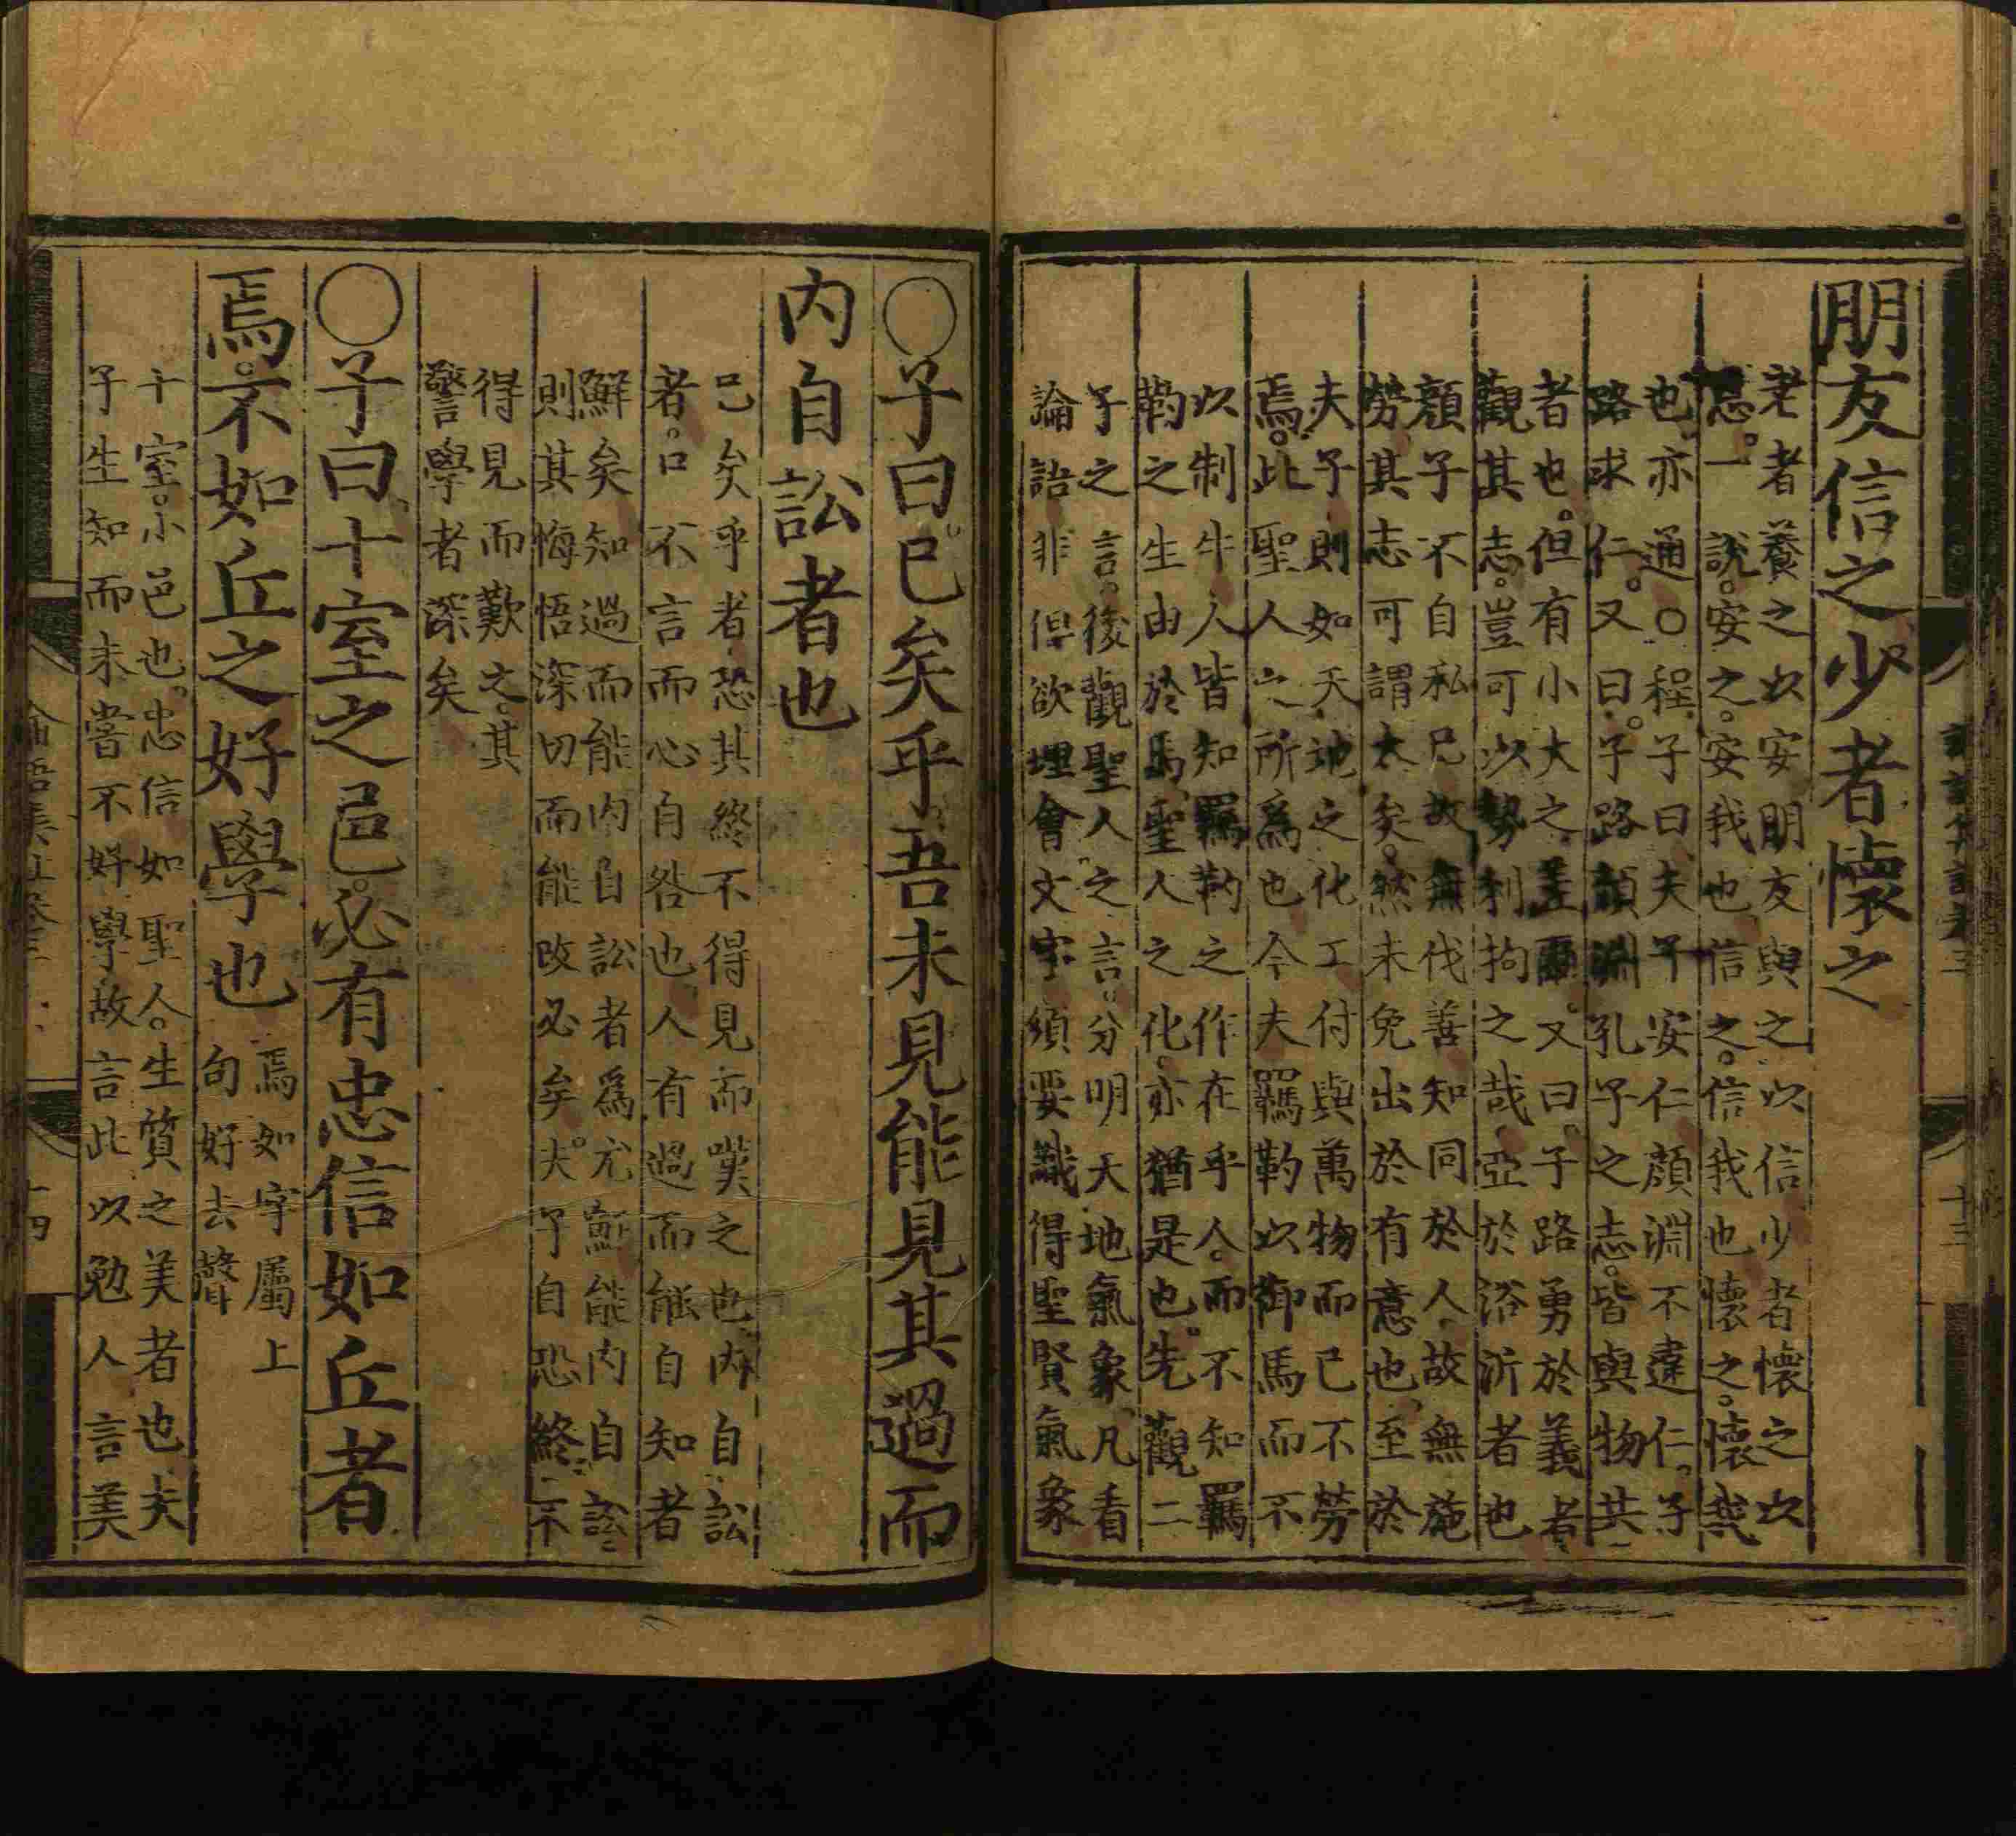 朋友信之少者懷之
老者養之以安朋友與之以信少者懷之以
恩一說安之安我也信之信我也懷之懷我
也亦通○程子曰夫子安仁顔淵不違仁子
路求仁又曰子路顔淵孔子之志皆與物共
者也但有小大之差爾又曰子路勇於義者
觀其志豈可以勢利拘之哉亞於浴沂者也
顔子不自私已故無伐善知同於人故無施
勞其志可謂大矣然未免出於有意也至於
夫子則如天地之化工付與萬物而已不勞
焉此聖人之所爲也今夫羈靮以御馬而不
以制牛人皆知羈靮之作在乎人而不知羈
靮之生由於馬聖人之化亦猶是也先觀二
子之言後觀聖人之言分明天地氣象凡看
論語非但欲理會文字須要識得聖賢氣象
○子曰已矣乎吾未見能見其過而
内自訟者也
已矣乎者恐其終不得見而嘆之也内自訟
者口不言而心自咎也人有過而能自知者
鮮矣知過而能内自訟者爲尤鮮能内自訟
則其悔悟深切而能改必矣夫子自恐終不
得見而歎之其
警學者深矣
○子曰十室之邑必有忠信如丘者
焉不如丘之好學也
焉如字屬上
句好去聲
十室小邑也忠信如聖人生質之美者也夫
子生知而未嘗不好學故言此以勉人言美
十四